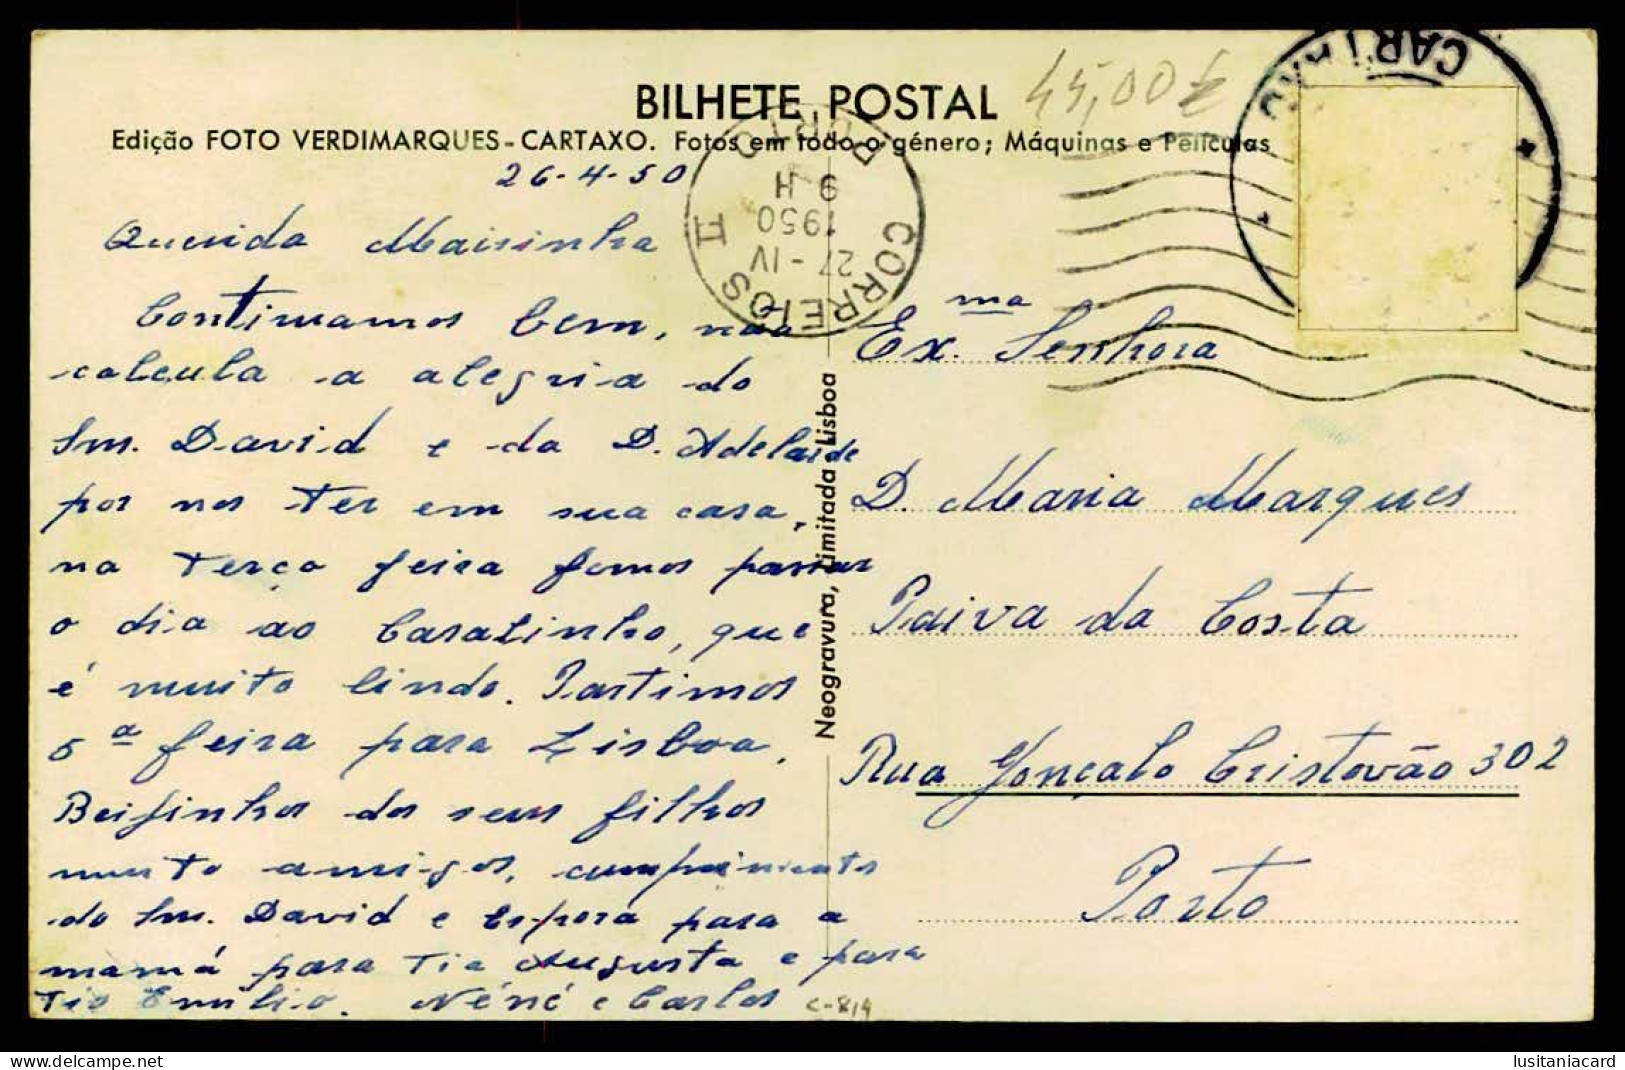 BILHETE POSTAL
45,00
Edição FOTO VERDIMARQUES - CARTAXO. Fotos em todo o género; Máquinas e Películas
CARTAXO
PORTO
9 H
1950
27 - IV
II
CORREIOS
26-4-50
Querida Mairinha
Continuamos bem, não
calcula a alegria do
Snr. David e da D. Adelaide
por nos ter em sua casa,
na Terça feira fomos passar
o dia ao Casalinho, que
é muito lindo. Partimos
5ª feira para Lisboa.
Beijinhos dos seus filhos
muito amigos, cumprimentos
do Snr. David e Espora para a
mamã para Tia Augusta e para
Tio Emilio. Néné e Carlos
C-814
Neogravura, Limitada Lisboa
Ex.ma Senhora
D. Maria Marques
Paiva da Costa
Rua Gonçalo Cristovão 302
Porto
delcampe.net
lusitaniacard